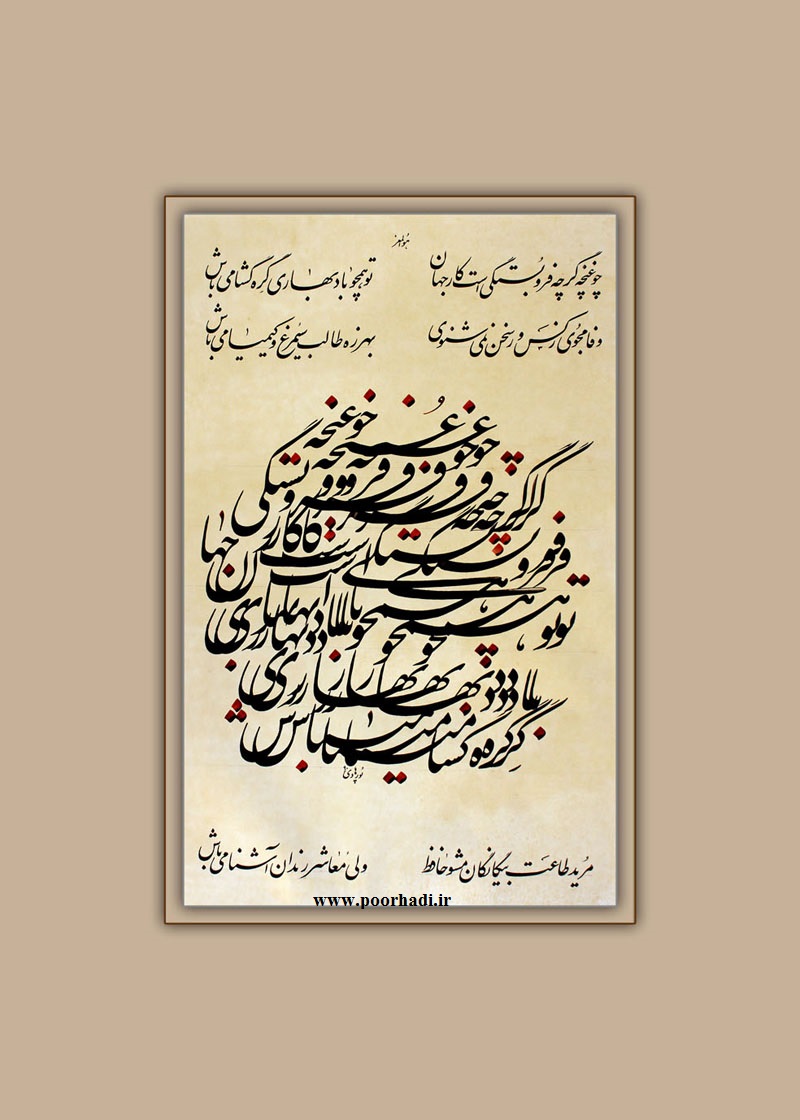 چو غنچه گرچه فروبستگی است کار جهان تو همچو باد بهاری گره گشا می باش
وفا مجوی ز کس ور سخن نمی شنوی بهرزه طالب سیمرغ و کیمیا می باش
چو غنچه
گرچه فروبستگی
است کار جهان
تو همچو باد بهاری
گره گشا می باش
پورهادی
مرید طاعت بیگانگان مشو حافظ ولی معاشر رندان آشنا می باش
www.poorhadi.ir